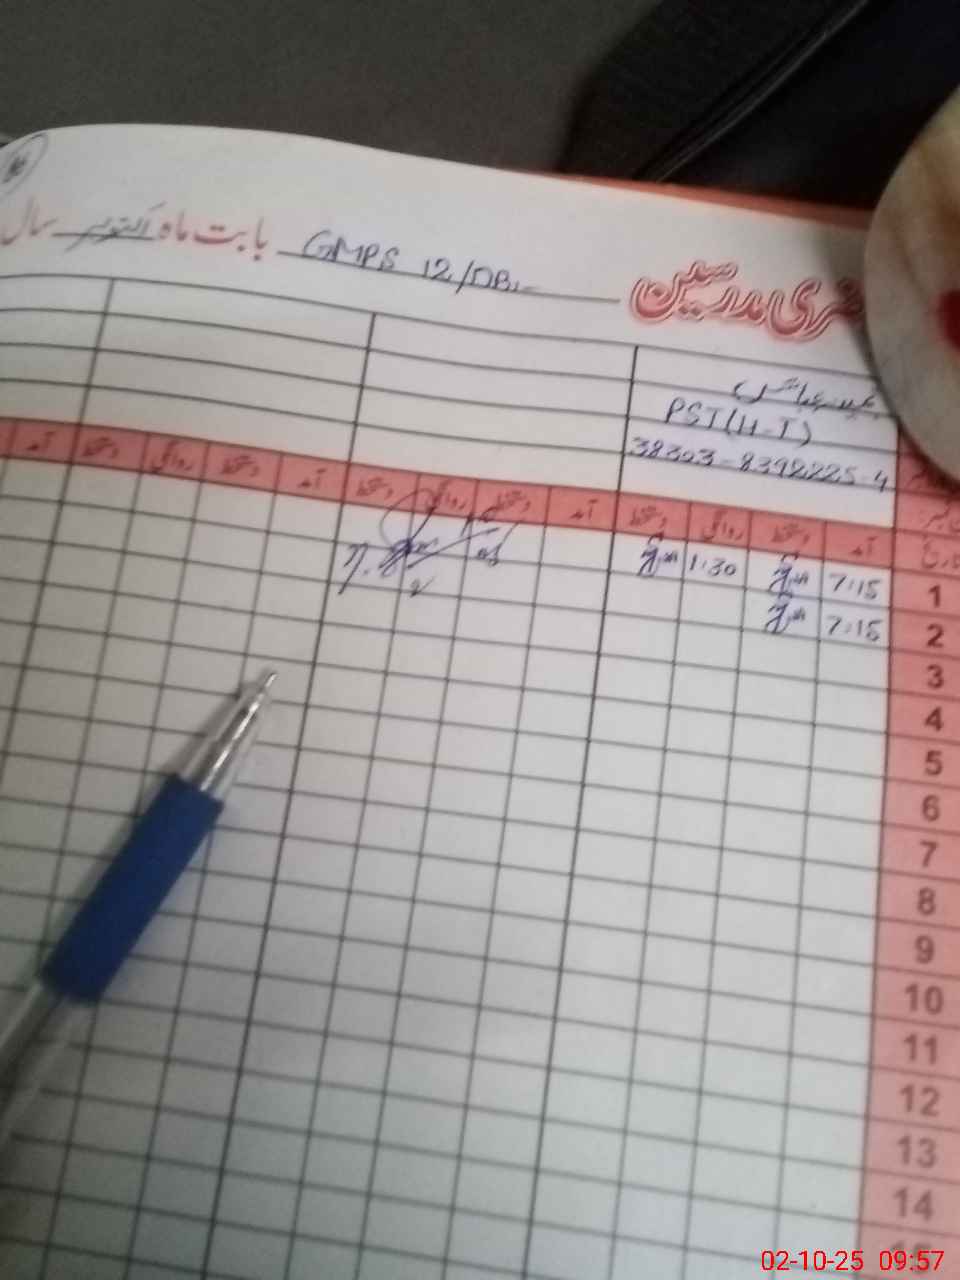 حاضری مدرسین GMPS 12/DB. بابت ماہ اکتوبر سال
PST(H-T)
38303-8392225-4
آمد دستخط روانگی دستخط آمد دستخط روانگی دستخط آمد دستخط روانگی دستخط آمد
1 7:15 1:30
2 7:15
3
4
5
6
7
8
9
10
11
12
13
14
15
02-10-25 09:57